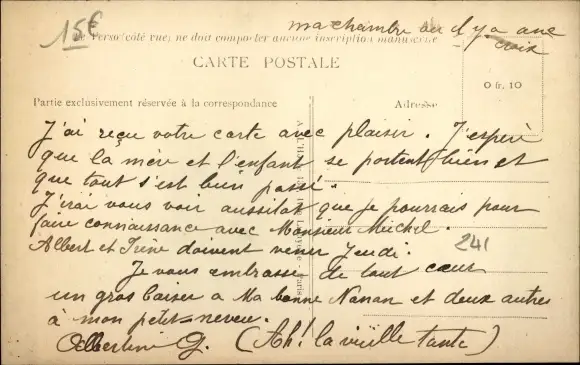 15€
ma chambre ou il y a une
croix
Le Verso (côté vue) ne doit comporter aucune inscription manuscrite
CARTE POSTALE
0 fr. 10
Partie exclusivement réservée à la correspondance
Adresse
J'ai reçu votre carte avec plaisir. J'espère
que la mère et l'enfant se portent bien et
que tout s'est bien passé.
J'irai vous voir aussitôt que je pourrais pour
faire connaissance avec Monsieur Michel.
Albert et Irène doivent venir jeudi.
241
Je vous embrasse de tout cœur
un gros baiser a Ma bonne Nanan et deux autres
à mon petit=neveu.
Albertine G. (Ah! la vieille tante)